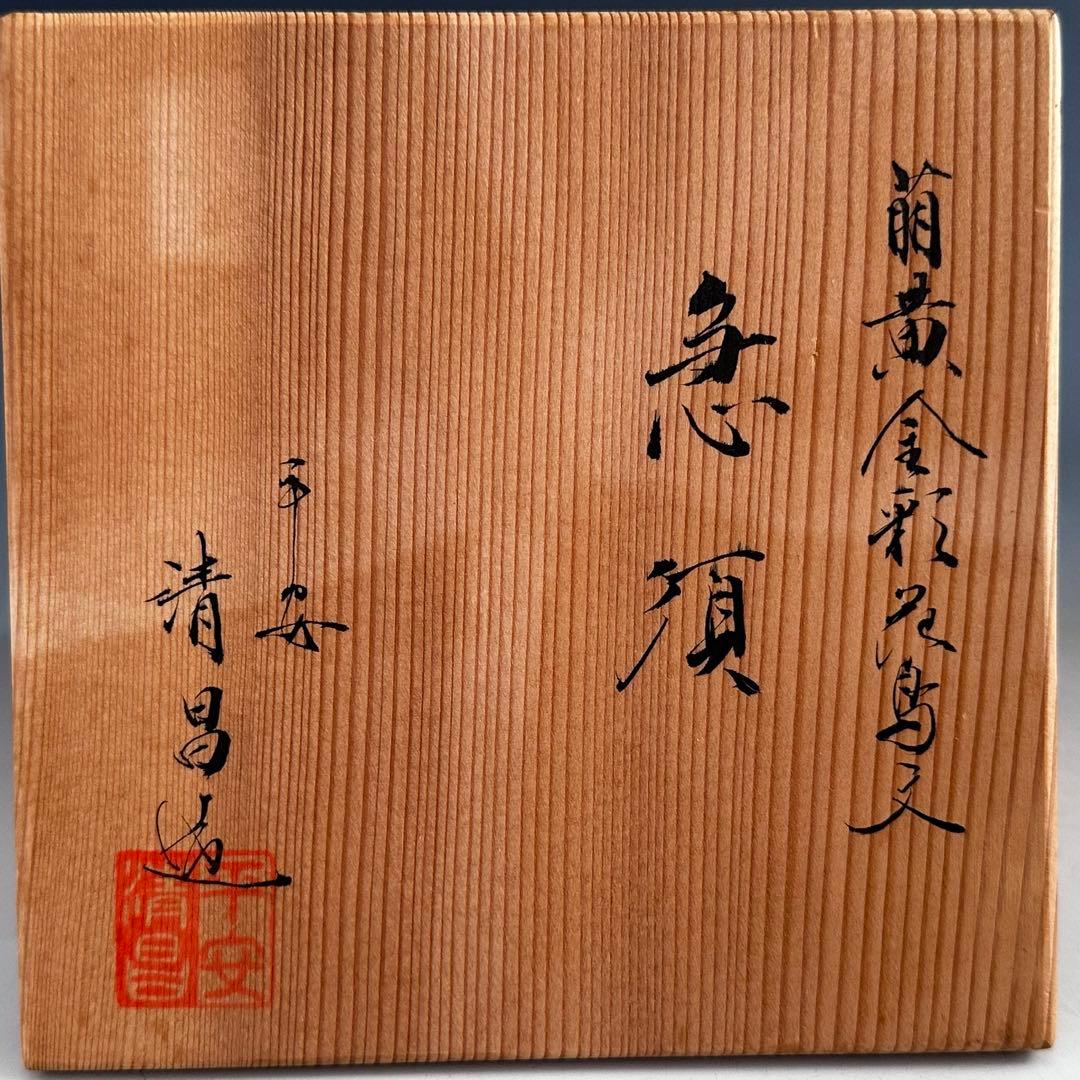 萌黄金彩花鳥文
急須
平安
清昌造
平安
清昌